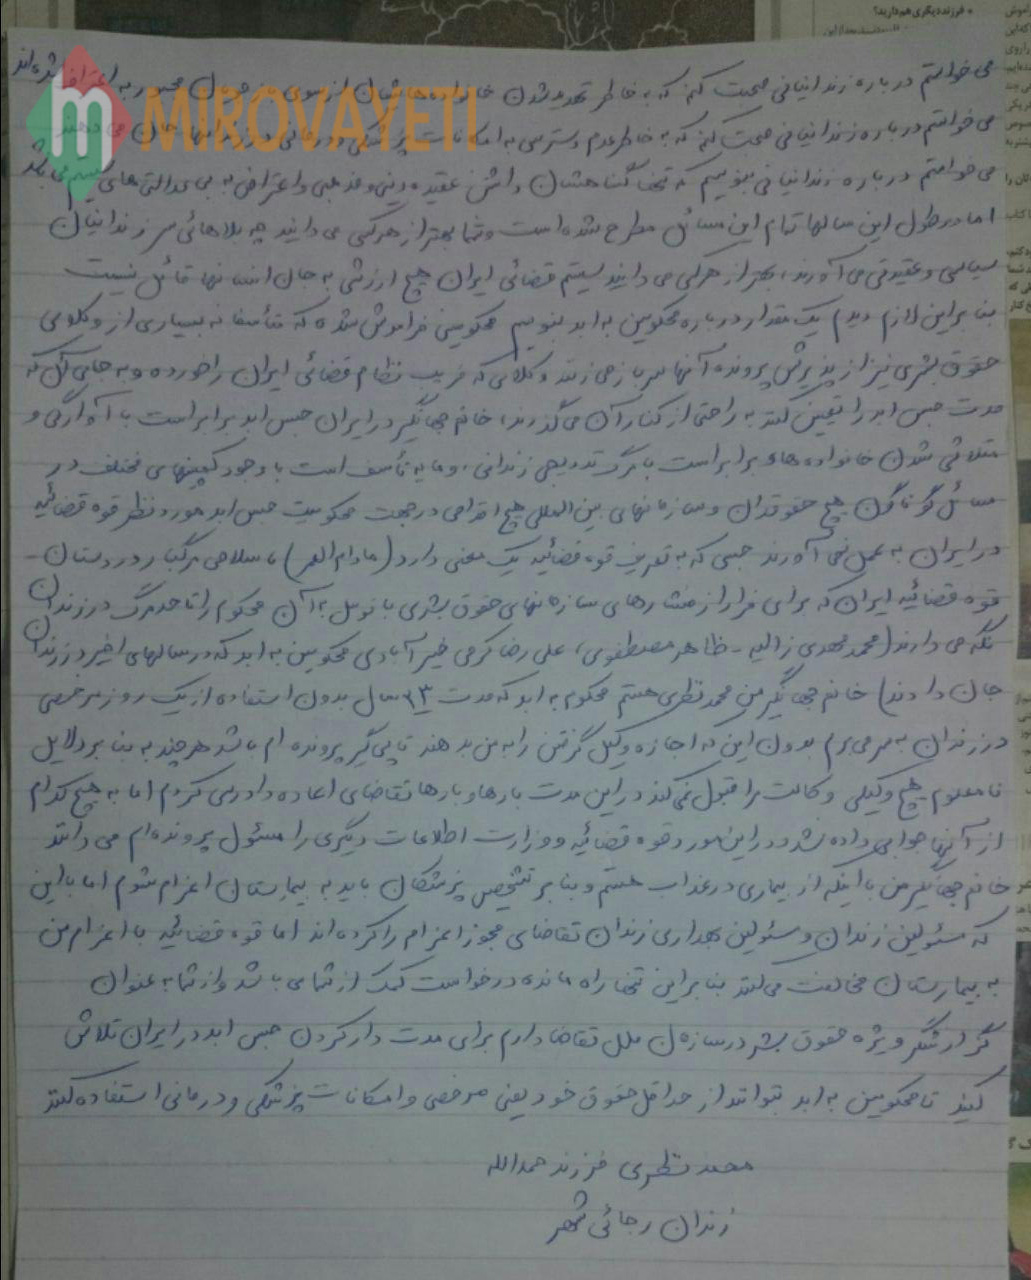 • فرزند دیگری هم دارید؟
MIROVAYETI
می خواستم درباره زندانیانی صحبت کنم که به خاطر تهدید شدن خانواده هاشان از سوی مجبور به اعتراف شده اند
می خواستم درباره زندانیانی صحبت کنم که به خاطر عدم دسترسی به امکانات پزشکی و درمانی در زندانها جان می دهند
می خواستم درباره زندانیانی بنویسم که تنها گناهشان داشتن عقیده دینی و مذهبی و اعتراض به بی عدالتی های سیستم می باشد
اما در طول این سالها تمام این مسائل مطرح شده است و شما بهتر از هر کسی می دانید چه بلاهائی سر زندانیان
سیاسی و عقیدتی می آورند، بهتر از هر کسی می دانید سیستم قضائی ایران هیچ ارزشی به جان انسانها قائل نیست
بنابراین لازم دیدم یک مقدار درباره محکومین به ابد بنویسم محکومینی فراموش شده که متأسفانه بسیاری از وکلای
حقوق بشری نیز از پذیرش پرونده آنها سر باز می زنند وکلائی که فریب نظام قضائی ایران را خورده و به جای آنکه
مدت حبس ابد را تعیین کنند به راحتی از کنار آن می گذرند، خانم جهانگیر در ایران حبس ابد برابر است با آوارگی و
متلاشی شدن خانواده ها، برابر است با مرگ تدریجی زندانی، و مایه تأسف است با وجود کمپینهای مختلف در
مسائل گوناگون هیچ حقوقدان و سازمانهای بین المللی هیچ اقدامی در جهت محکومیت حبس ابد مورد نظر قوه قضائیه
در ایران به عمل نمی آورند حبسی که به تعریف قوه قضائیه یک معنی دارد (مادام العمر) با سلاحی مرگبار در دستان
قوه قضائیه ایران که برای فرار از فشارهای سازمانهای حقوق بشری با توسل به آن محکوم را تا حد مرگ در زندان
نگه می دارند (محمد مهدی زالیه - ظاهر مصطفوی، علی رضا کرمی خیرآبادی محکومین به ابد که در سالهای اخیر در زندان
جان دادند) خانم جهانگیر من محمد نظری هستم محکوم به ابد که مدت ۲۳ سال بدون استفاده از یک روز مرخصی
در زندان به سر می برم بدون این که اجازه وکیل گرفتن را به من بدهند تا پی گیر پرونده ام باشد هر چند به بنا بر دلایل
نامعلوم هیچ وکیلی وکالت مرا قبول نمی کند در این مدت بارها و بارها تقاضای اعاده دادرسی کردم اما به هیچ کدام
از آنها جوابی داده نشد و در این مورد قوه قضائیه و وزارت اطلاعات دیگری را مسئول پرونده ام می دانند
خانم جهانگیر من با اینکه از بیماری در عذاب هستم و بنا بر تشخیص پزشکان باید به بیمارستان اعزام شوم اما با این
که مسئولین زندان و مسئولین بهداری زندان تقاضای مجوز اعزام را کرده اند اما قوه قضائیه با اعزام من
به بیمارستان مخالفت می کند بنابراین تنها راه مانده درخواست کمک از شما می باشد و از شما به عنوان
گزارشگر ویژه حقوق بشر در سازمان ملل تقاضا دارم برای مدت دار کردن حبس ابد در ایران تلاش
کنید تا محکومین به ابد بتوانند از حداقل حقوق خود یعنی مرخصی و امکانات پزشکی و درمانی استفاده کنند
محمد نظری فرزند حمدالله
زندان رجائی شهر